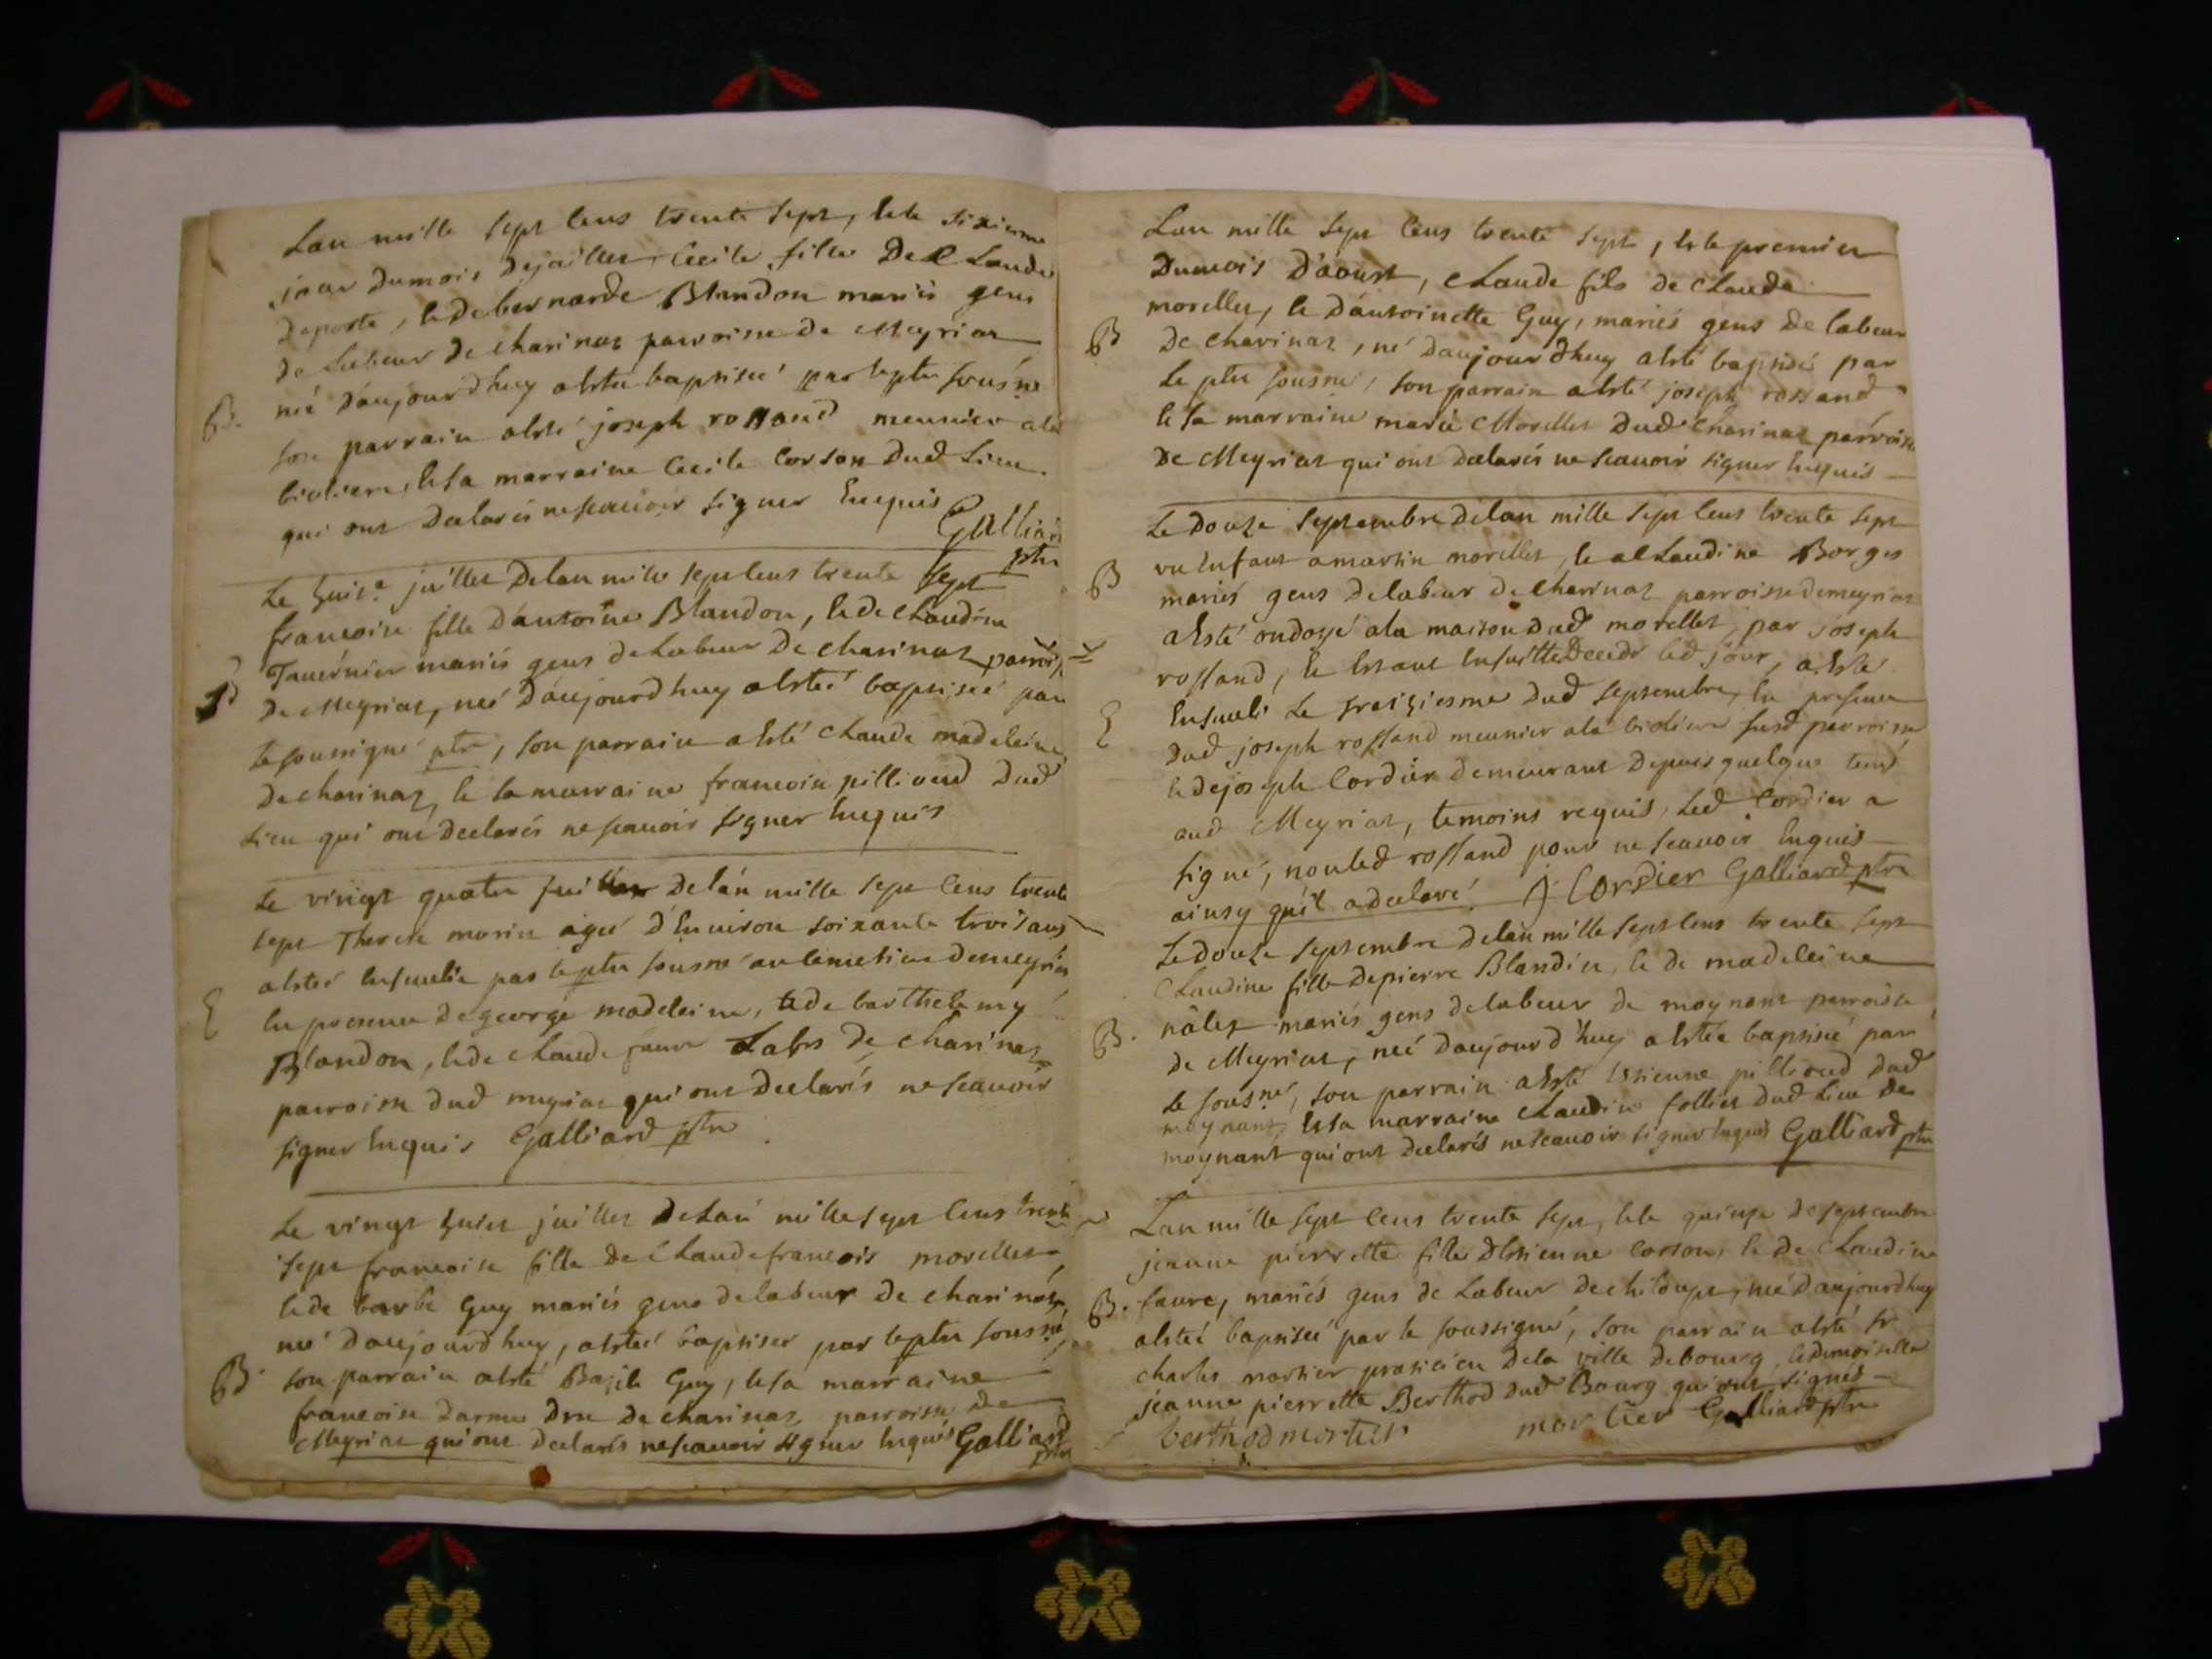 Lan mille sept Cens trente sept, & le sixieme
jour Dumois Dejuillet Cecile fille De Claude
Deporte, & de bernarde Blandon mariés gens
De Labeur De charinaz parroisse De Meyriat
née D'aujourdhuy aesté baptisée par le ptre sousné
B.
son parrain aesté joseph rossand meunier ala
biolière, & sa marraine Cecile Corson Dud Lieu.
qui ont Declarés nescauoir signer Enquis
Galliard
ptre
Le huite juillet Delan mille sept Cens trente sept
francoise fille D'antoine Blandon, & de Claudine
Tauernier mariés gens de Labeur De charinaz parrois
B
De Meyriat, née D'aujourdhuy aestée baptisée par
Le soussigné ptre, son parrain aesté Claude madeleine
De charinaz, & sa marraine francoise pillioud Dud
Lieu qui ont Declarés nescauoir signer Enquis
Le vingt quatre juillet Delan mille sept Cens trente
sept Therese morin agée d'Enuiron soixante trois ans
aestée Enseuelie par le ptre sousné au Cemetiere Demeyriat
E
En presence De george madeleine, & de barthelemy
Blandon, & de Claude faure Labrs De charinaz
parroisse dud meyriat qui ont Declarés nescauoir
signer Enquis Galliard ptre
Le vingt huict juillet Delan mille sept Cens trente
sept francoise fille De Claude francois morellet
& de barbe Guy mariés gens de labeur De charinaz,
née D'aujourdhuy, aestée baptisée par le ptre sousné,
B
son parrain aesté Bazile Guy, & sa marraine
francoise De charinaz, parroisse De
Meyriat qui ont Declarés nescauoir signer Enquis Galliard
ptre
Lan mille sept Cens trente sept, & le premier
Dumois D'aoust, Claude fils de Claude
morellet, & D'antoinette Guy, mariés gens De labeur
B
De charinaz, né D'aujourdhuy aesté baptisé par
Le ptre sousné, son parrain aesté joseph rossand
& sa marraine marie Morellet Dud Charinaz parroisse
De Meyriat qui ont declarés ne scauoir signer Enquis
Le Douze septembre Delan mille sept Cens trente sept
B
vn Enfant a martin morellet, & a Claudine Borges
mariés gens De labeur De charinaz parroisse Demeyriat
aesté ondoyé ala maison Dud morellet, par joseph
rossand, & Estant Ensuitte Decedé led jour, aesté
E
Enseueli Le treiziesme dud septembre, En presence
Dud joseph rossand meunier ala biolière susd parroisse
& de joseph Cordier demeurant Depuis quelque temps
aud Meyriat, temoins requis, Led Cordier a
signé, non led rossand pour ne scauoir Enquis
ainsy quil a declaré. J Cordier Galliard ptre
Le Douze septembre Delan mille sept Cens trente sept
Claudine fille Depierre Blandin, & de madeleine
nâlet mariés gens de labeur de moynant parroisse
B.
de Meyriat, née D'aujourdhuy aestée baptisée par
Le sousné, son parrain aesté Estienne pillioud Dud
moynant, & sa marraine Claudine follier dud Lieu De
moynant qui ont declarés nescauoir signer Enquis Galliard ptre
Lan mille sept Cens trente sept, & le quinze de septembre
jeanne pierrette fille d'Estienne Corson, & De Claudine
B.
faure, mariés gens de Labeur De chiloup, née D'aujourdhuy
aestée baptisée par le soussigné, son parrain aesté sr
charles mortier praticien dela ville debourg, & demoiselle
jeanne pierrette Berthod dud Bourg qui ont signés
berthod mortier mortier Galliard ptre